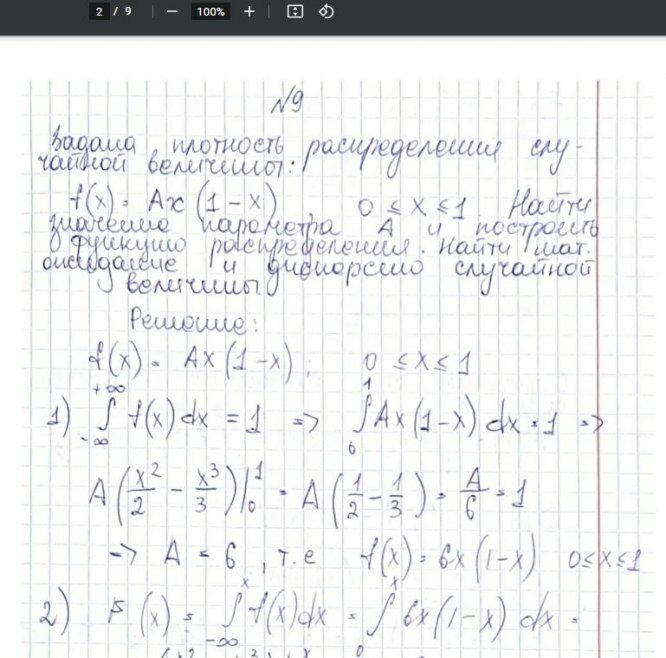 2 / 9 — 100% +
N9
Задана плотность распределения слу-
чайной величины:
f(x) = Ax (1 - x), 0 ≤ x ≤ 1 Найти
значение параметра A и построить
функцию распределения. Найти мат.
ожидание и дисперсию случайной
величины
Решение:
f(x) = Ax (1-x); 0 ≤ x ≤ 1
1) ∫_{-∞}^{+∞} f(x) dx = 1 => ∫_0^1 Ax (1-x) dx = 1 =>
A (x²/2 - x³/3) |_0^1 = A (1/2 - 1/3) = A/6 = 1
=> A = 6, т.е f(x) = 6x (1-x) 0≤x≤1
2) F (x) = ∫_{-∞}^x f(x) dx = ∫_0^x 6x (1-x) dx =